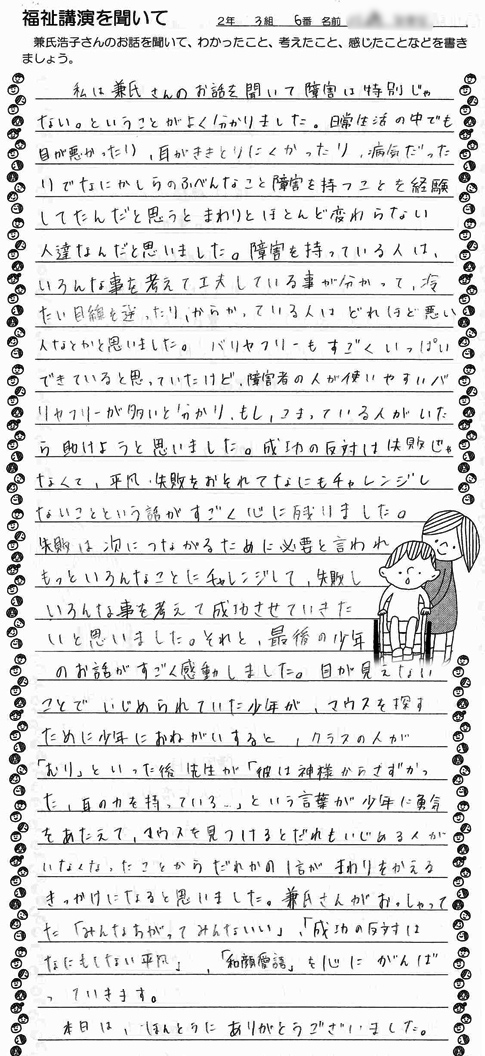 福祉講演を聞いて
2年 3組 6番 名前
兼氏浩子さんのお話を聞いて、わかったこと、考えたこと、感じたことなどを書き
ましょう。
私は兼氏さんのお話を聞いて障害は特別じゃ
ない。ということがよく分かりました。日常生活の中でも
目が悪かったり、耳がききとりにくかったり、病気だった
りでなにかしらのふべんなこと障害を持つことを経験
してたんだと思うとまわりとほとんど変わらない
人達なんだと思いました。障害を持っている人は、
いろんな事を考えて工夫している事が分かって、冷
たい目線を送ったり、からかっている人はどれほど悪い
人なとかと思いました。バリヤフリーもすごくいっぱい
できていると思っていたけど、障害者の人が使いやすいバ
リヤフリーが多いと分かり、もし、こまっている人がいた
ら助けようと思いました。成功の反対は失敗じゃ
なくて、平凡・失敗をおそれてなにもチャレンジし
ないことという話がすごく心に残りました。
失敗は次につながるために必要と言われ
もっといろんなことにチャレンジして、失敗し
いろんな事を考えて成功させていきた
いと思いました。それと、最後の少年
のお話がすごく感動しました。目が見えない
ことでいじめられていた少年が、マウスを探す
ために少年におねがいすると、クラスの人が
「むり」といった後先生が「彼は神様からさずかっ
た、耳の力を持っている…」という言葉が少年に勇気
をあたえて、マウスを見つけるとだれもいじめる人が
いなくなったことからだれかの1言がまわりをかえる
きっかけになると思いました。兼氏さんがおっしゃって
た「みんなちがってみんないい」、「成功の反対は
なにもしない平凡」、「和顔愛語」を心にがんば
っていきます。
本日は、ほんとうにありがとうございました。